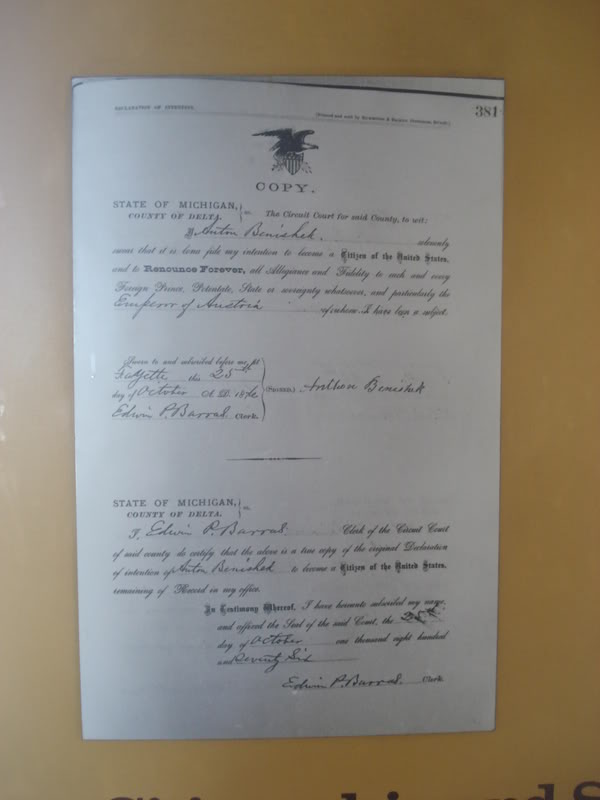 DECLARATION OF INTENTION.
381
COPY.
STATE OF MICHIGAN,
COUNTY OF DELTA.
ss.
The Circuit Court for said County, to wit:
I, Anton Benishek. solemnly
swear that it is bona fide my intention to become a Citizen of the United States,
and to Renounce Forever, all Allegiance and Fidelity to each and every
Foreign Prince, Potentate, State or sovereignty whatsoever, and particularly the
Emperor of Austria of whom I have been a subject.
Sworn to and subscribed before me, at
Fayette this 25th
day of October A. D. 1876
Edwin P. Barras. Clerk.
(SIGNED.) Benishek
STATE OF MICHIGAN,
COUNTY OF DELTA.
ss.
I, Edwin P. Barras. Clerk of the Circuit Court
of said county do certify that the above is a true copy of the original Declaration
of intention of Anton Benishek to become a Citizen of the United States.
remaining of Record in my office.
In Testimony Whereof, I have hereunto subscribed my name,
and affixed the Seal of the said Court, the 25th
day of October one thousand eight hundred
and Seventy Six
Edwin P. Barras. Clerk